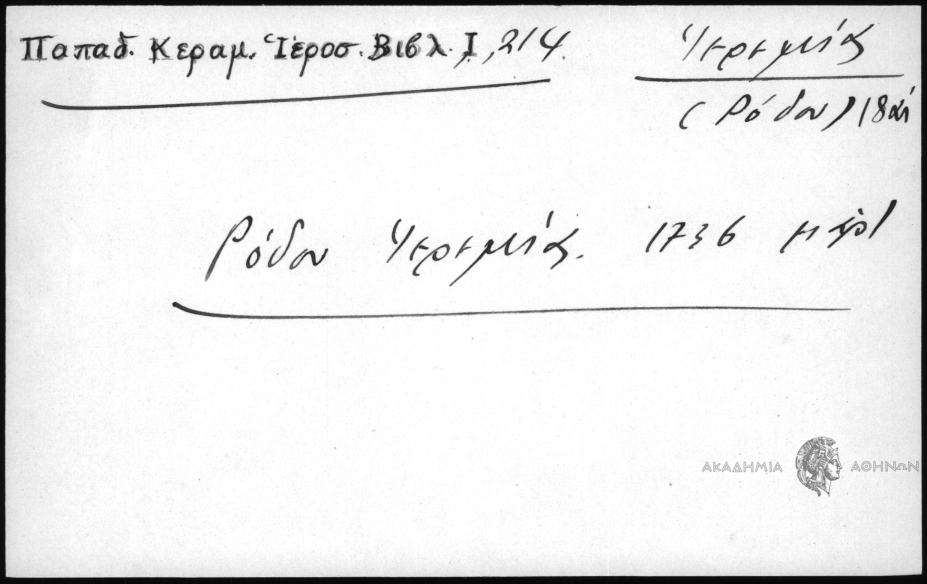 Παπαδ. Κεραμ. Ἱεροσ. Βιβλ. Ι, 214.
Ἱερεμίας
(Ρόδου) 18 αἰ
Ρόδου Ἱερεμίας. 1736
ΑΚΑΔΗΜΙΑ ΑΘΗΝΩΝ